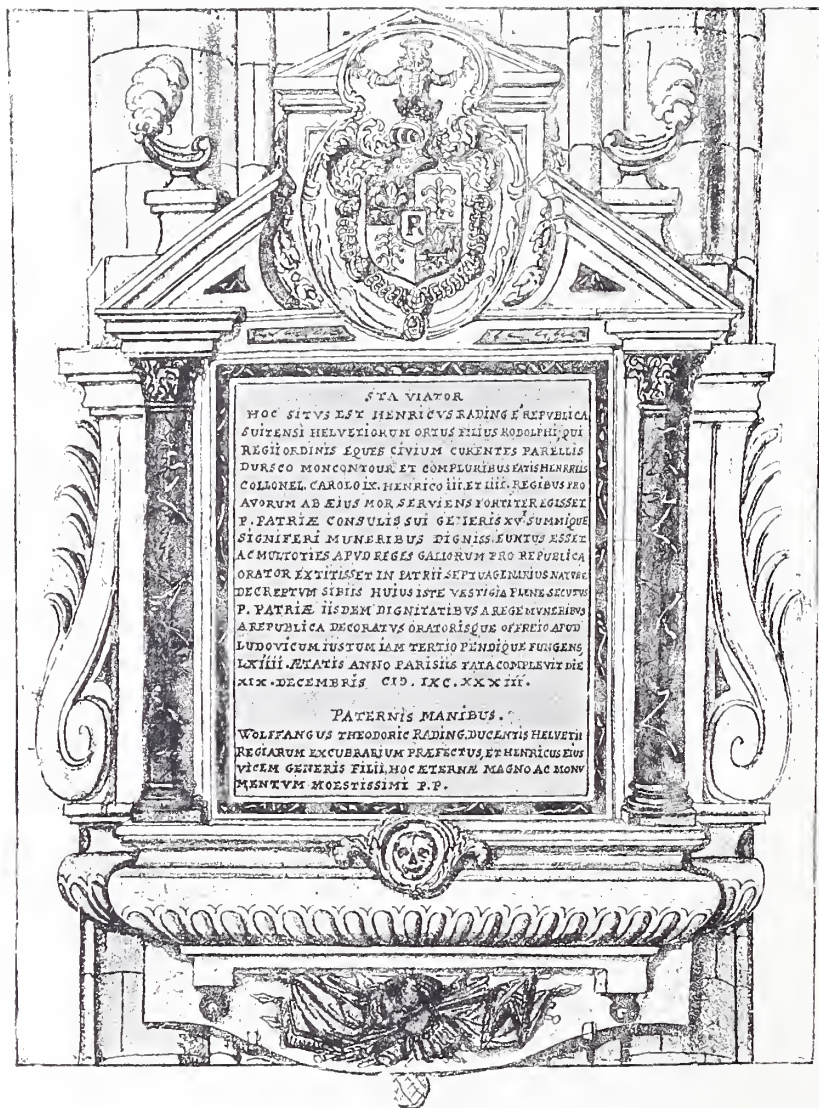 R
STA VIATOR
HOC SITVS EST HENRICVS RADING E REPVBLICA
SUITENSI HELVETIORUM ORTUS FILIUS RODOLPHI, QUI
REGII ORDINIS EQUES CIVIUM CURENTES PARELLIS
DURSCO MONCONTOUR ET COMPLURIBUS
COLLONEL. CAROLO IX. HENRICO iii. ET iiii. REGIBUS PRO
AVORUM AB ÆIUS MOR SERVIENS FORTITER EGISSET
P. PATRIÆ CONSULIS SUI GENERIS XV SUMNIQUE
SIGNIFERI MUNERIBUS DIGNISS. EUNTUS ESSET
AC MULTOTIES APVD REGES GALIORUM PRO REPUBLICA
ORATOR EXTITISSET IN PATRII SEPTUAGENERIUS NATURE
DECREPTVM SIBIIS HUIUS ISTE VESTIGIA PLENE SECUTUS
P. PATRIÆ IISDEM DIGNITATIBVS A REGE MUNERIBUS
A REPUBLICA DECORATVS ORATORISQUE OFFREIO APUD
LUDOVICUM IUSTUM IAM TERTIO PENDIQUE FUNGENS
LXIIII. ÆTATIS ANNO PARISIIS FATA COMPLEVIT DIE
XIX. DECEMBRIS CIↃ. IXC. XXXIII.
PATERNIS MANIBUS.
WOLFFANGUS THEODORIC RADING, DUCENTIS HELVETII
REGIARUM EXCUBRARIUM PRÆFECTUS, ET HENRICUS EIUS
VICEM GENERIS FILII, HOC ÆTERNÆ MAGNO AC MONV
MENTVM MOESTISSIMI P.P.